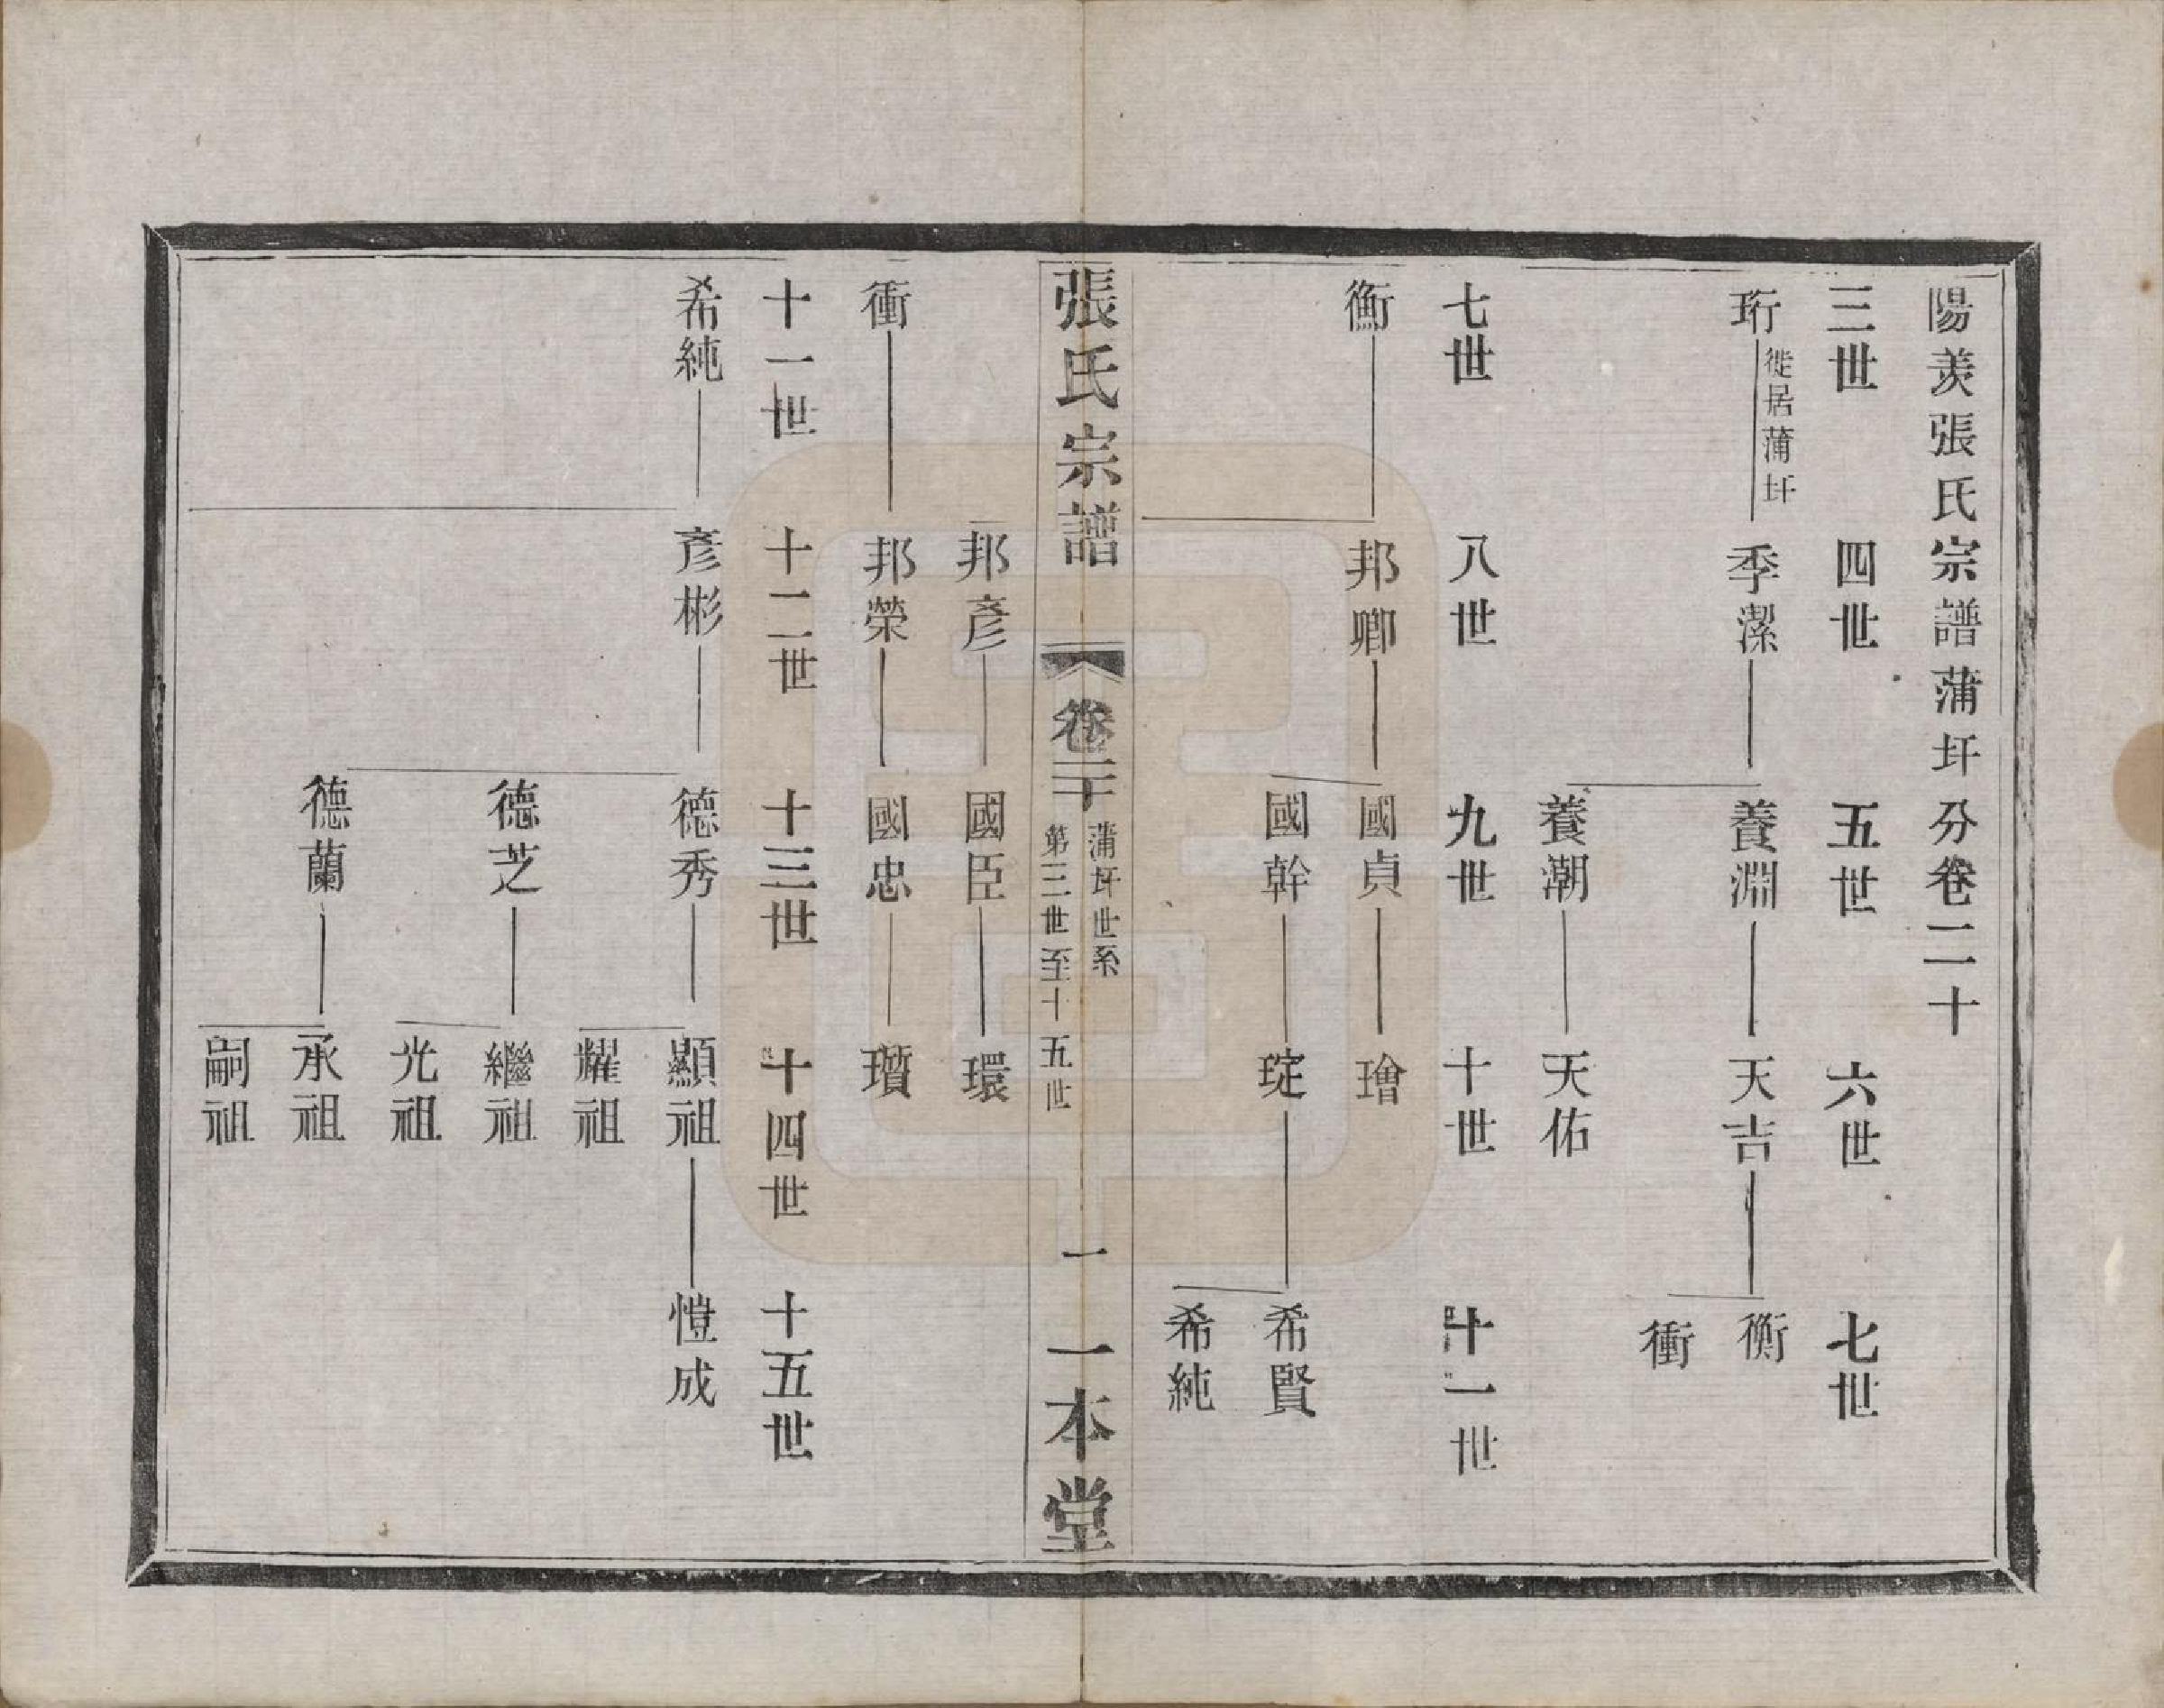 陽羨張氏宗譜蒲圩分卷二十
三世 四世 五世 六世 七世
珩 徙居蒲圩 季潔 養淵 天吉 衡
衝
養潮 天佑
七世 八世 九世 十世 十一世
衡 邦卿 國貞 璯
國幹 琁 希賢
希純
張氏宗譜 卷二十 蒲圩世系 第三世至十五世 一 一本堂
邦彥 國臣 環
衝 邦榮 國忠 瓚
十一世 十二世 十三世 十四世 十五世
希純 彥彬 德秀 顯祖 愷成
耀祖
德芝 繼祖
光祖
德蘭 承祖
嗣祖